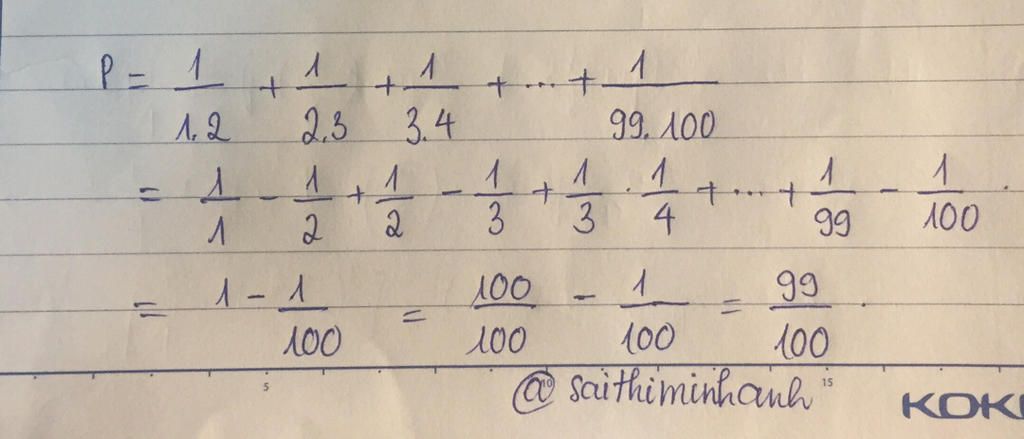 P = 1/1.2 + 1/2.3 + 1/3.4 + ... + 1/99.100
= 1/1 - 1/2 + 1/2 - 1/3 + 1/3 . 1/4 + ... + 1/99 - 1/100 .
= 1 - 1/100 = 100/100 - 1/100 = 99/100 .
5 10 15
@saithiminhanh